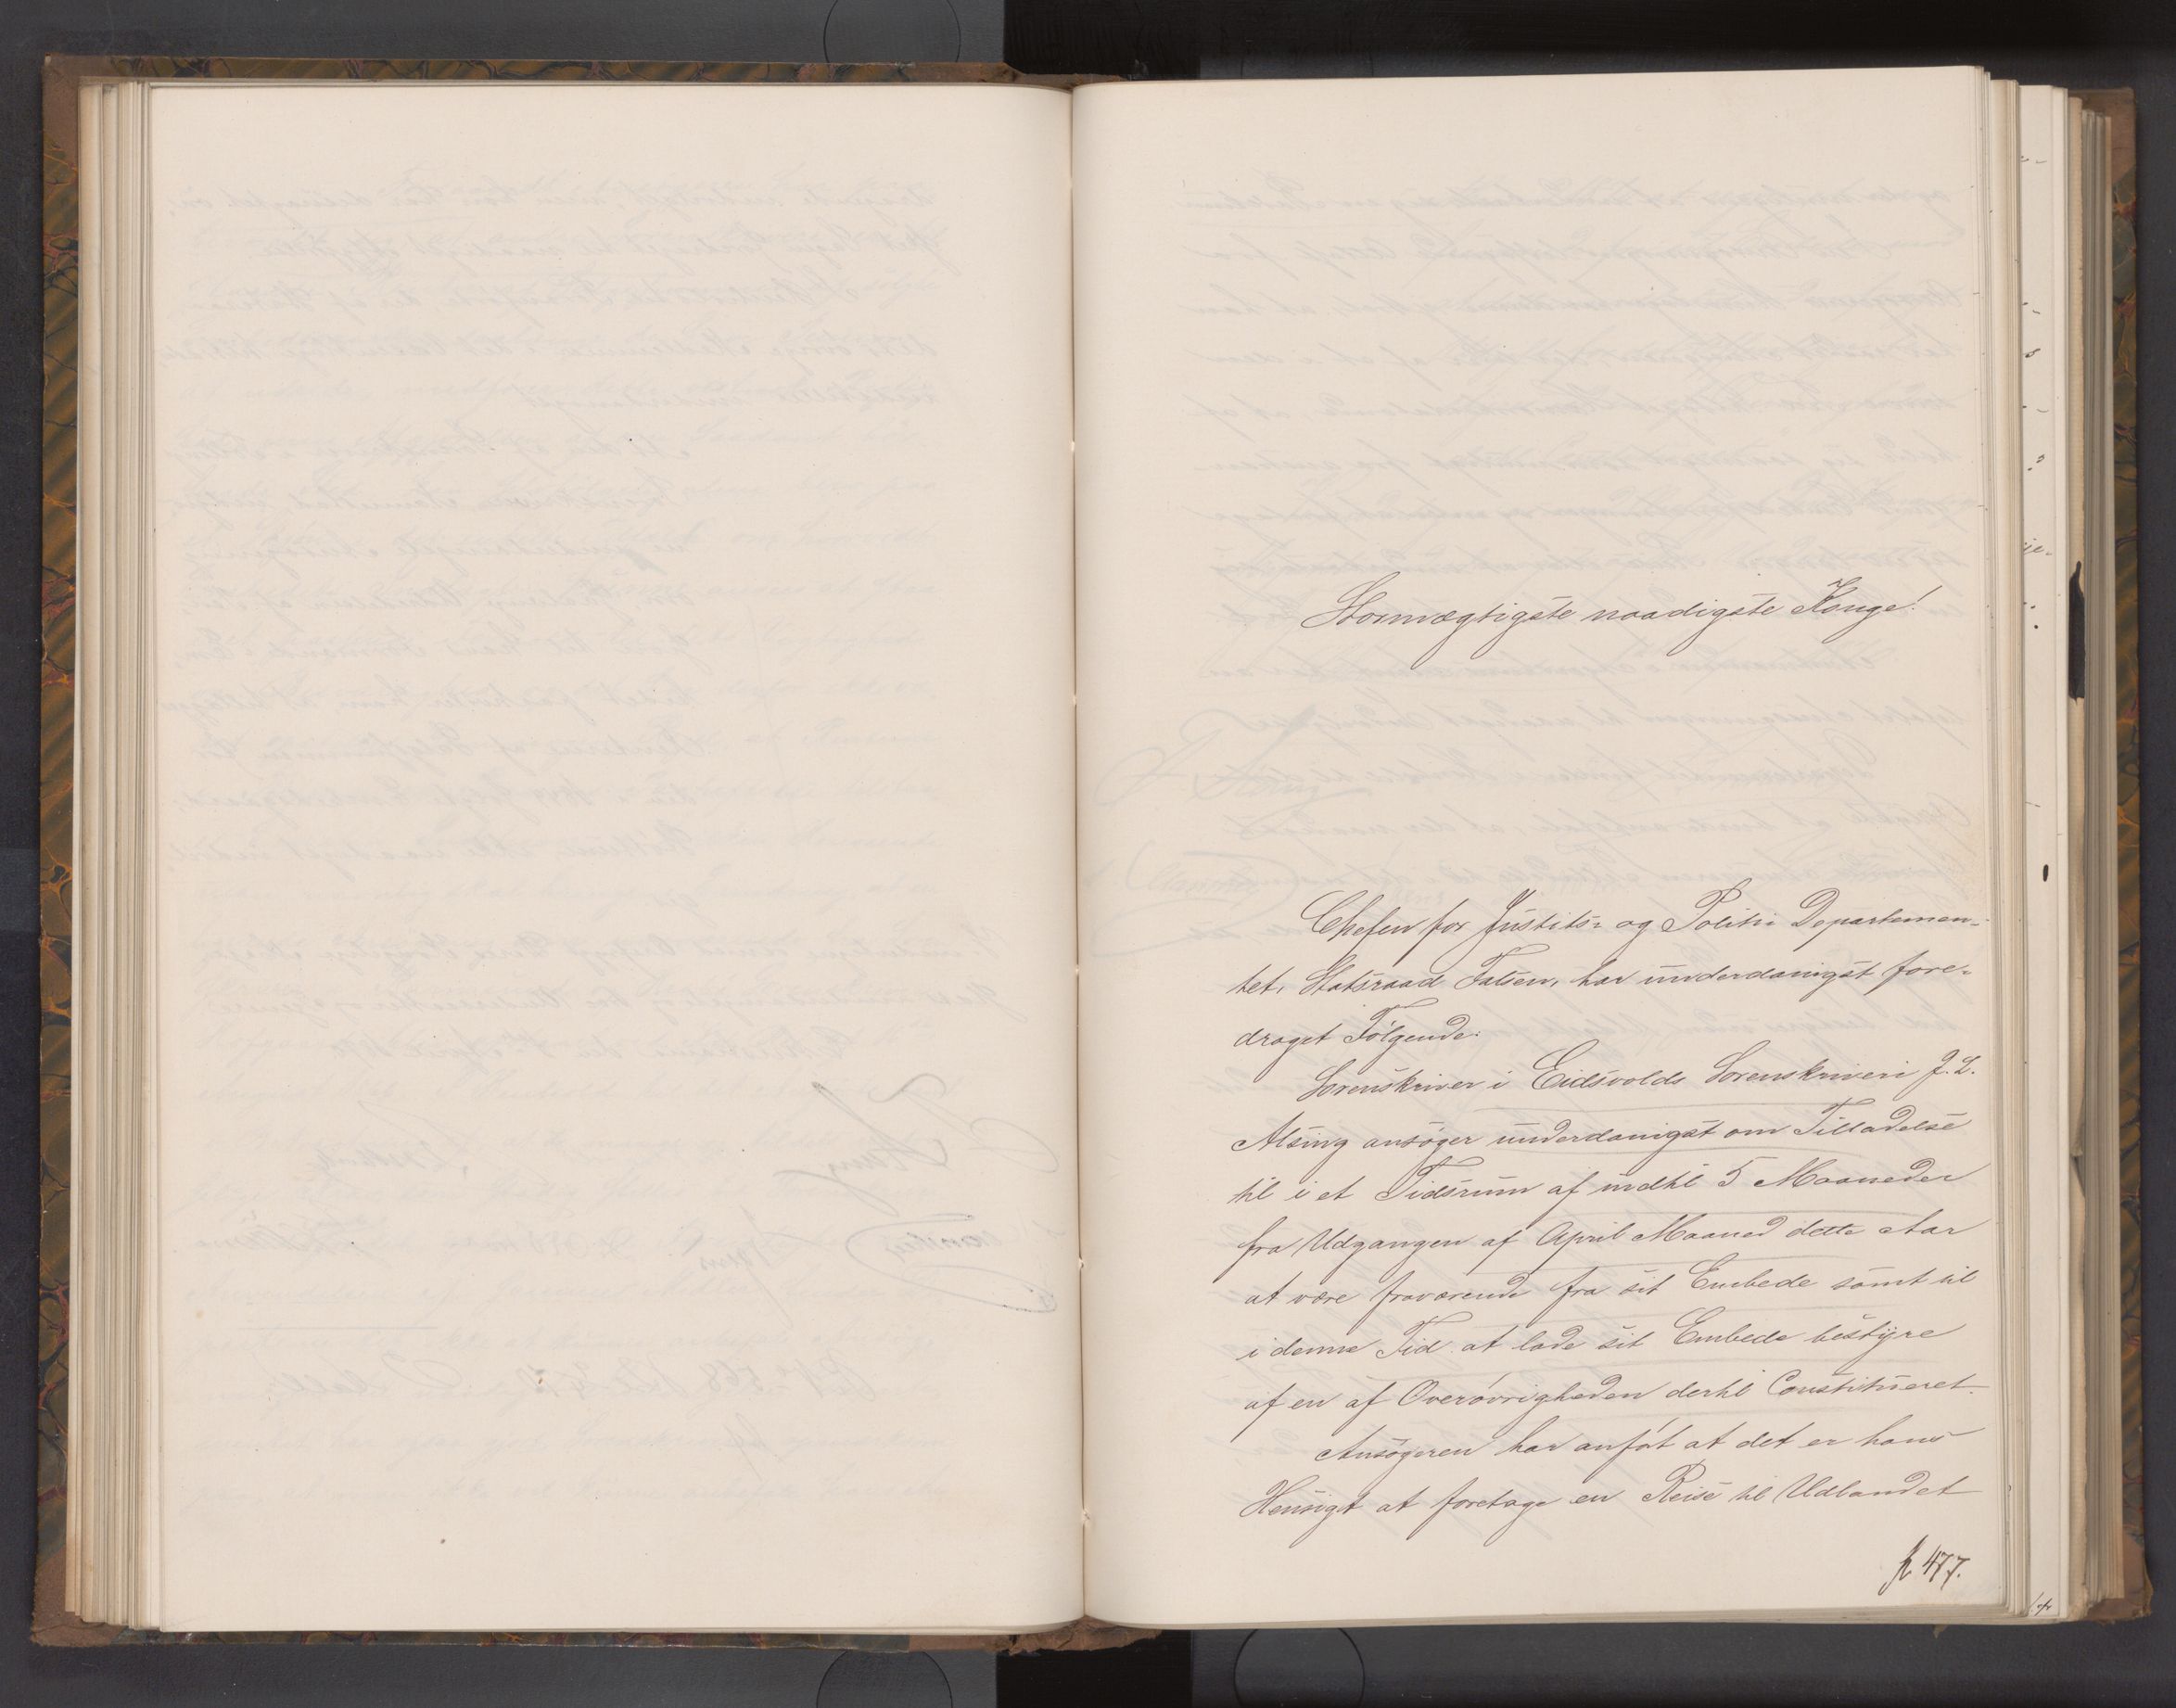 Stormægtigste naadigste Konge!
Chefen for Justits- og Politi Departemen-
tet, Statsraad Falsen, har underdanigst fore-
draget Følgende:
Sorenskriver i Eidsvolds Sorenskriveri J. L.
Alsing ansøger underdanigst om Tilladelse
til i et Tidsrum af indtil 5 Maaneder
fra Udgangen af April Maaned dette Aar
at være fraværende fra sit Embede samt til
i denne Tid at lade sit Embede bestyre
af en af Overøvrigheden dertil Constitueret.
Ansøgeren har anført at det er hans
Hensigt at foretage en Reise til Udlandet
p 477.